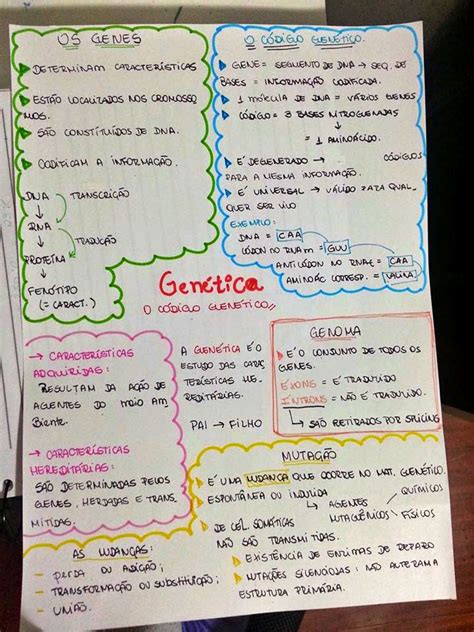 OS GENES
DETERMINAM CARACTERÍSTICAS
ESTÃO LOCALIZADOS NOS CROMOSSO
MOS.
SÃO CONSTITUÍDOS DE DNA.
CODIFICAM A INFORMAÇÃO.
DNA TRANSCRIÇÃO
↓
RNA
↓ TRADUÇÃO
PROTEÍNA
↓
FENÓTIPO
(= CARACT.)
O CÓDIGO GENÉTICO
GENE = SEGMENTO DE DNA → SEQ. DE
BASES = INFORMAÇÃO CODIFICADA.
1 MOLÉCULA DE DNA = VÁRIOS GENES
CÓDIGO = 3 BASES NITROGENADAS
= 1 AMINOÁCIDO.
É DEGENERADO → CÓDIGOS
PARA A MESMA INFORMAÇÃO.
É UNIVERSAL → VÁLIDO PARA QUAL
QUER SER VIVO
EXEMPLO:
DNA = CAA
CÓDON NO RNAm = GUU
ANTICÓDON NO RNAt = CAA
AMINOÁC CORRESP. = VALINA
Genética
O CÓDIGO GENÉTICO
→ CARACTERÍSTICAS
ADQUIRIDAS:
RESULTAM DA AÇÃO DE
AGENTES DO MEIO AM
BIENTE.
→ CARACTERÍSTICAS
HEREDITÁRIAS:
SÃO DETERMINADAS PELOS
GENES, HERDADAS E TRANS
MITIDAS.
A GENÉTICA É O
ESTUDO DAS CARAC
TERÍSTICAS HE
REDITÁRIAS.
PAI → FILHO
GENOMA
É O CONJUNTO DE TODOS OS
GENES.
ÉXONS = É TRADUZIDO
ÍNTRONS = NÃO É TRADUZIDO.
↳ SÃO RETIRADOS POR SPLICING
MUTAÇÃO
É UMA MUDANÇA QUE OCORRE NO MAT. GENÉTICO.
ESPONTÂNEA OU INDUZIDA
↳ AGENTES QUÍMICOS
MUTAGÊNICOS FÍSICOS
DE CÉL. SOMÁTICAS
NÃO SÃO TRANSMITIDAS.
EXISTÊNCIA DE ENZIMAS DE REPARO
MUTAÇÕES SILENCIOSAS: NÃO ALTERAM A
ESTRUTURA PRIMÁRIA.
AS MUDANÇAS:
- PERDA OU ADIÇÃO;
- TRANSFORMAÇÃO OU SUBSTITUIÇÃO;
- UNIÃO.